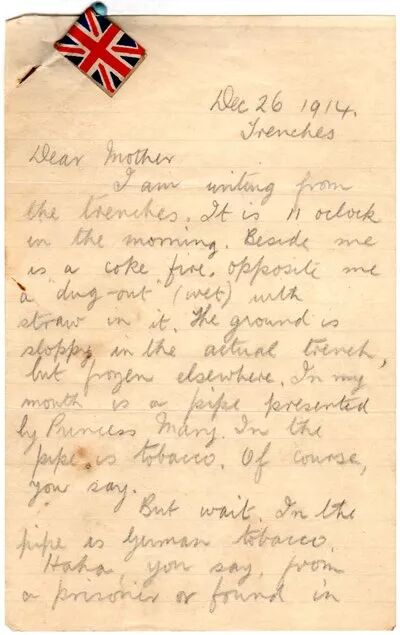 Dec 26 1914.
Trenches
Dear Mother
I am writing from
the trenches. It is 11 oclock
in the morning. Beside me
is a coke fire, opposite me
a 'dug-out' (wet) with
straw in it. The ground is
sloppy in the actual trench,
but frozen elsewhere. In my
mouth is a pipe presented
by Princess Mary. In the
pipe is tobacco. Of course,
you say.
But wait. In the
pipe is German tobacco.
Haha, you say, from
a prisoner or found in